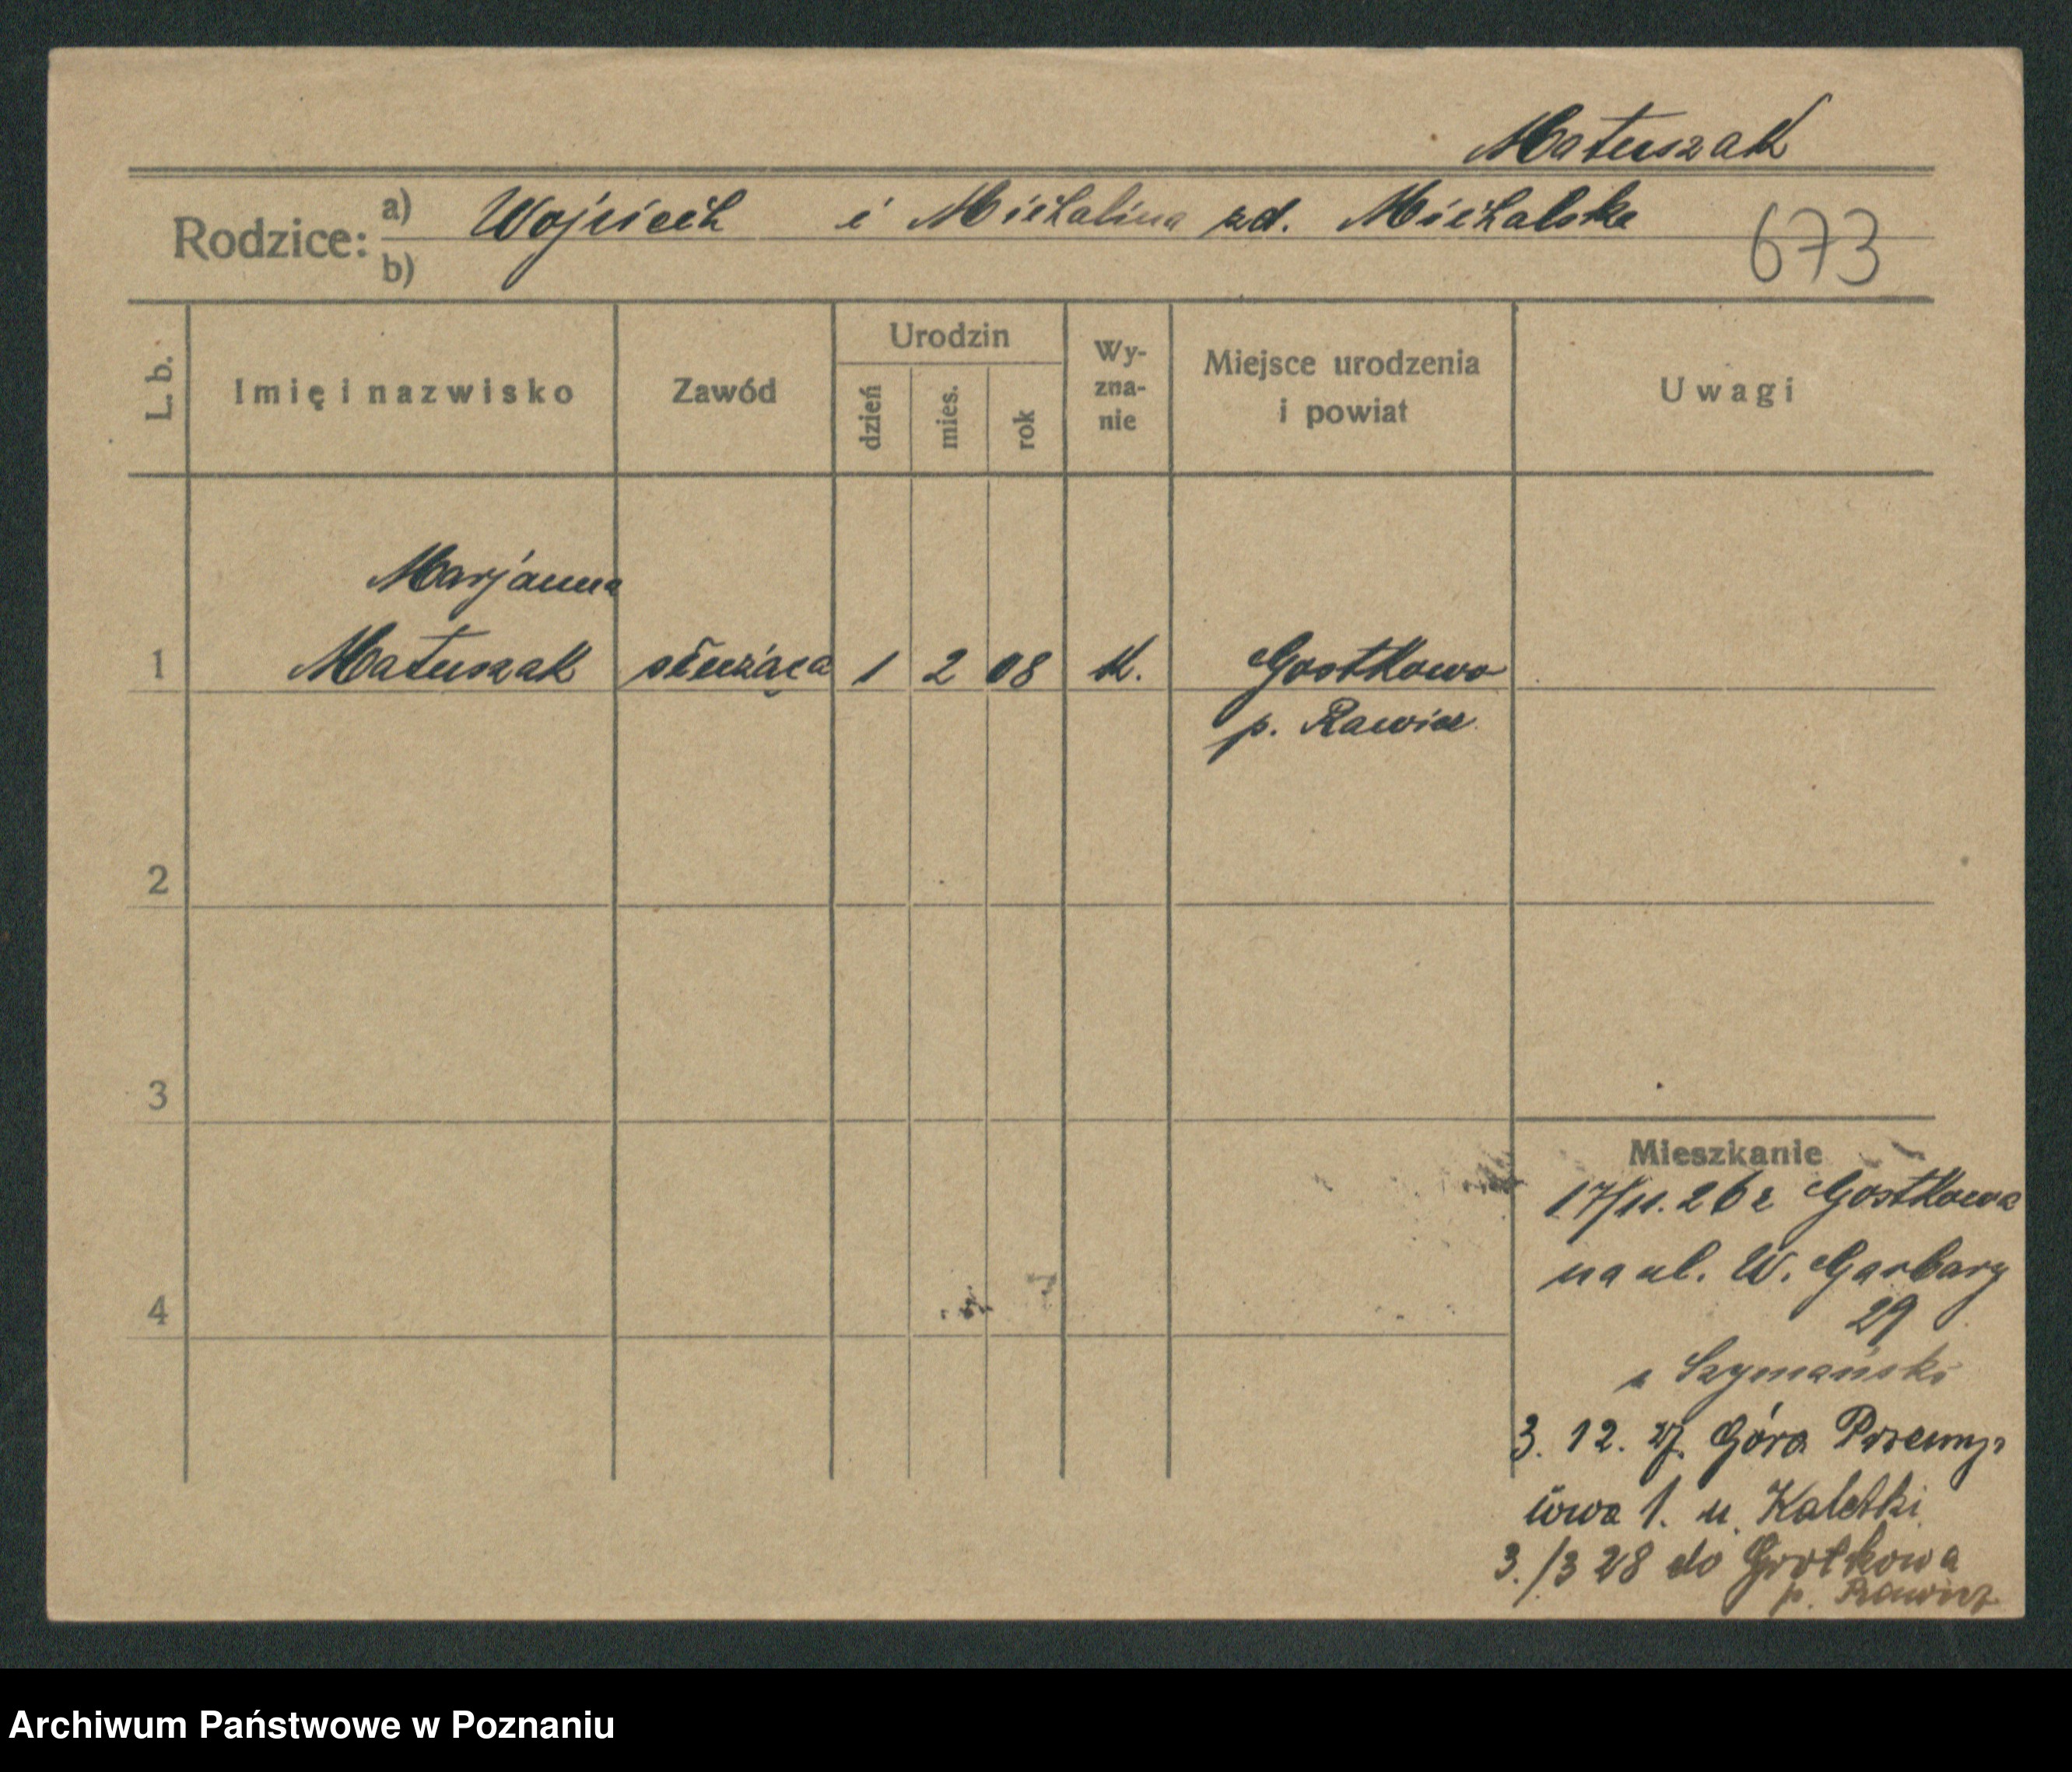 Matuszak
Rodzice: a) Wojciech i Michalina zd. Michalska
b)
673
L. b.
Imię i nazwisko
Zawód
Urodzin
dzień
mies.
rok
Wy-
zna-
nie
Miejsce urodzenia
i powiat
Uwagi
Marjanna
1 Matuszak służąca 1 2 08 k. Gostkowo
p. Rawicz
2
3
4
Mieszkanie
17/11.26 z Gostkowa
na ul. W. Garbary
29
Szymański
3. 12. 27. Góra Przemy-
słowa 1. u. Kaletki
3./3 28 do Gostkowa
p. Rawicz
Archiwum Państwowe w Poznaniu